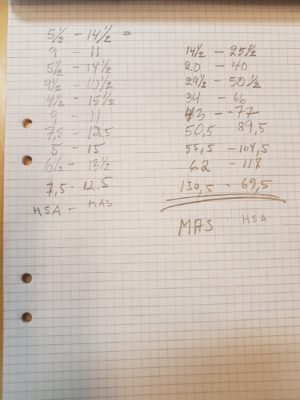 5½ - 14½ =
9 - 11
5½ - 14½
9½ - 10½
4½ - 15½
9 - 11
7,5 - 12,5
5 - 15
6½ - 13½
7,5 - 12.5
HSA - MAS
14½ - 25½
20 - 40
29½ - 50½
34 - 66
43 - 77
50,5 89,5
55,5 - 104,5
62 - 118
130,5 - 69,5
MAS HSA